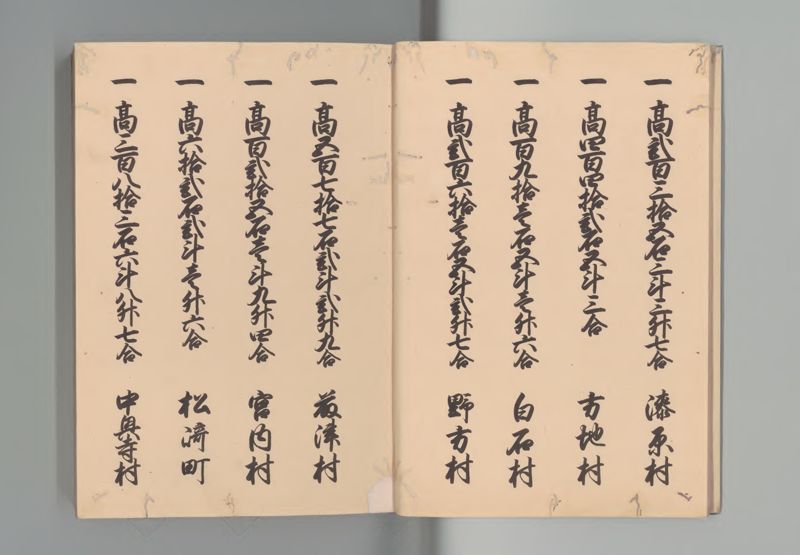 一 高弐百三拾五石三斗三升七合 漆原村
一 高四百四拾弐石五斗三合 方地村
一 高百九拾壱石五斗壱升六合 白石村
一 高弐百六拾壱石五斗弐升七合 野方村
一 高五百七拾七石弐斗弐升九合 藤津村
一 高百弐拾五石壱斗九升四合 宮内村
一 高六拾弐石弐斗壱升六合 松崎町
一 高三百八拾三石六斗八升七合 中興寺村